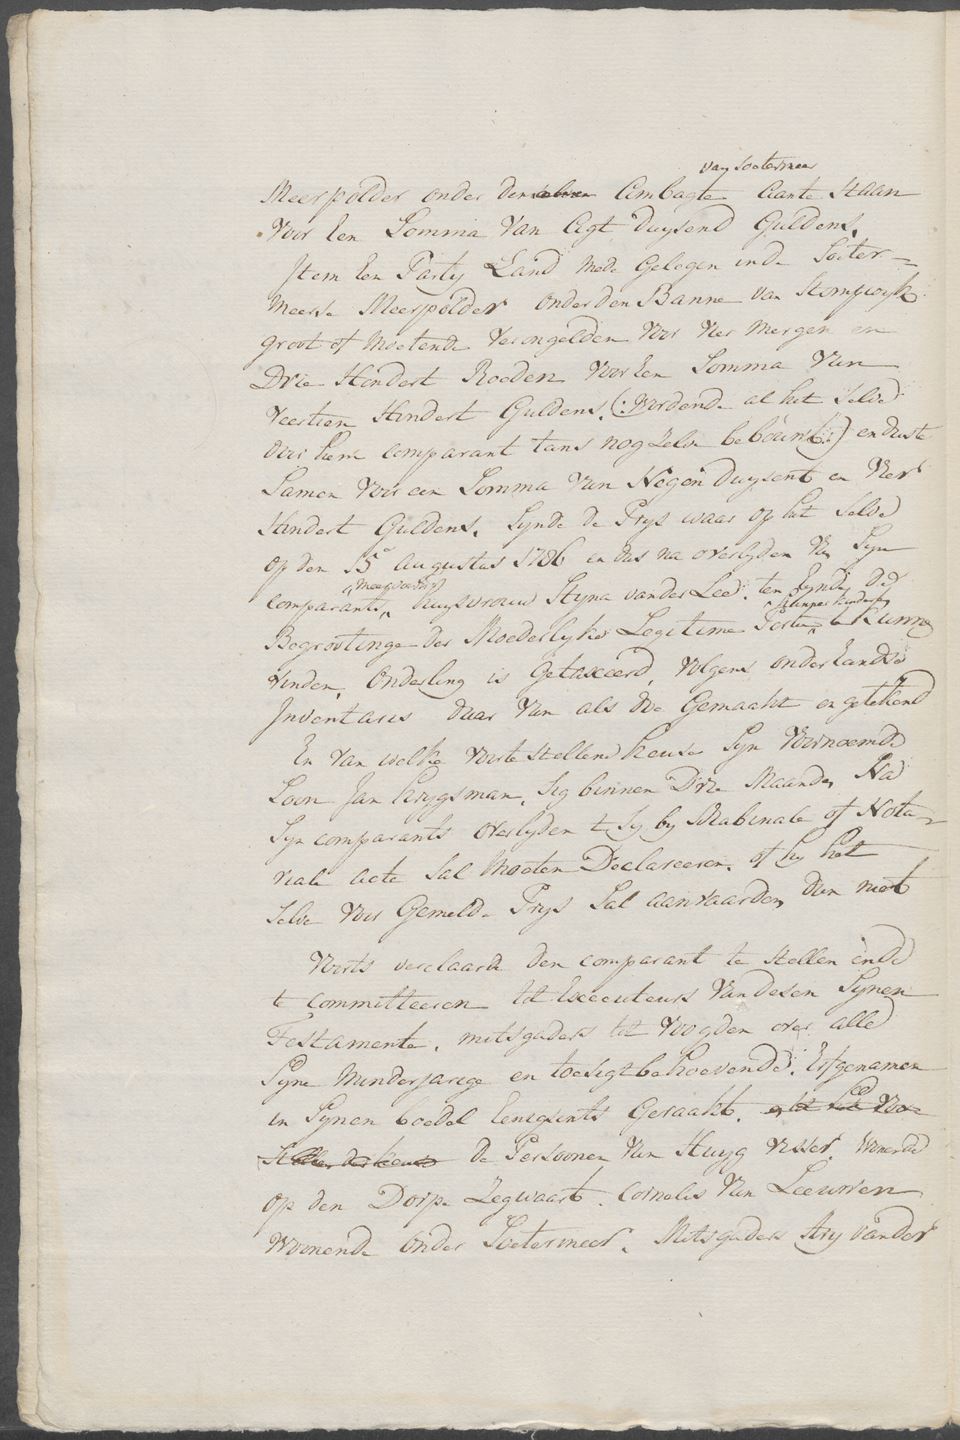 van Soetermeer
Meerpolder onder den selven Ambagte aante Staan
Voor Een Somma van Agt duysend Guldens.
Item Een Party Land mede Gelegen inde Soeter-
meerse Meerpolder onder den Banne van Stompwyk
groot of moetende verongelden voor vier mergen en
Drie Hondert Roeden voor Een Somma van
Veertien Hondert Guldens. (: wordende al het selve
door hem comparant tans nog zelve bebouwt:) en dus te
Samen voor een Somma van Negen duysent en Vier
Hondert Guldens. Synde de Prys waar op het selve
op den 15e Augustus 1786 en dus na overlyden van Syn
comparants huysvrouw Styna vander Lee. ten Eynde de
Begrootinge der Moederlyke Legitime Portie te Kunne
vinden, Onderling is Getaxeerd, volgens onderhandse
Inventaris daar van als doe Gemaakt en getekend
En van welke voorte stellene keuse Syn voornoemde
Soon Jan Krygsman, Sig binnen Drie Maanden Na
Syn comparants overlyden t sy by Schabinale of Nota-
riale acte Sal moeten Declareeren. of hy het
selve voor Gemelde Prys Sal aanvaarden dan niet
Voorts verclaarde den comparant te stellen ende
te committeeren tot Executeurs van desen Synen
Testamente, mitsgaders tot voogden over alle
Syne minderjarige en toesigt behoevende Erfgenamen
in Synen boedel Eenigsints Geraakt.
de Persoonen van Huyg Visser. Wonende
op den Dorpe Zegwaart. Cornelis van Leeuwen
Woonende onder Soetermeer. Mitsgaders Ary vander